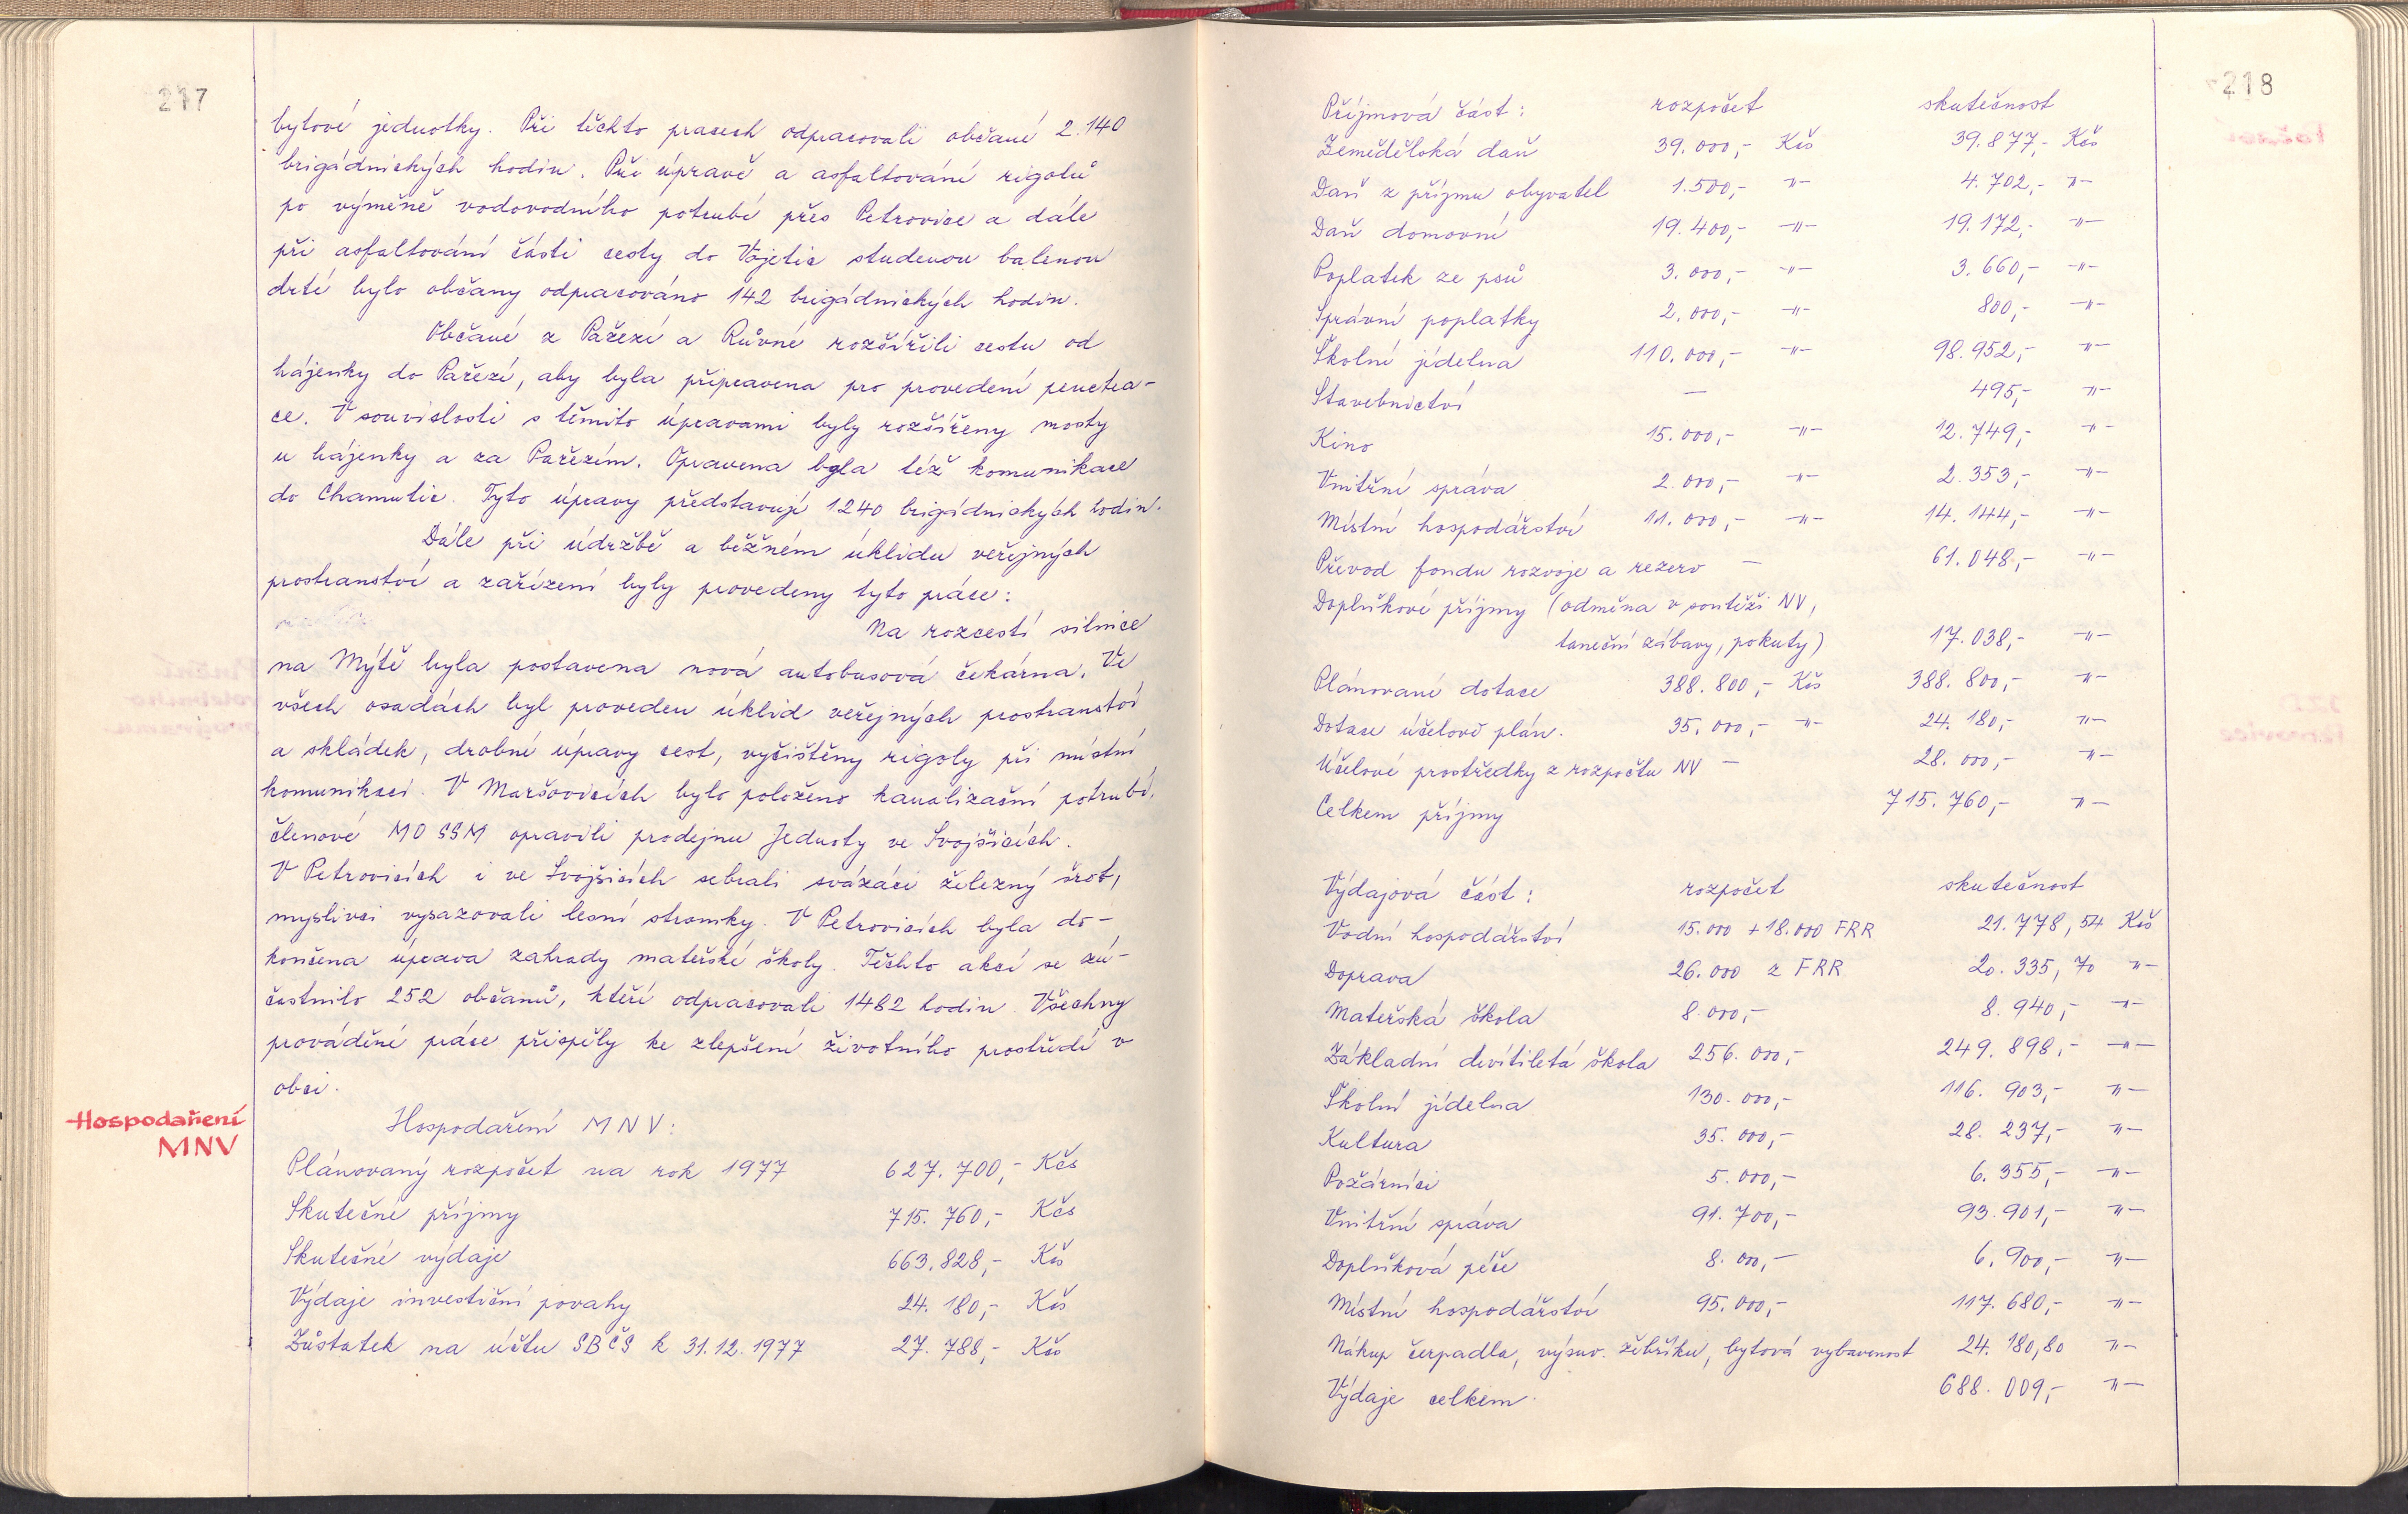 217
bytové jednotky. Při těchto pracech odpracovali občané 2.140
brigádnických hodin. Při úpravě a asfaltování rigolů
po výměně vodovodního potrubí přes Petrovice a dále
při asfaltování části cesty do Vojetic studenou balenou
drtí bylo občany odpracováno 142 brigádnických hodin.
Občané z Pařezí a Růvné rozšířili cestu od
hájenky do Pařezí, aby byla připravena pro provedení penetra-
ce. V souvislosti s těmito úpravami byly rozšířeny mosty
u hájenky a za Pařezím. Opravena byla též komunikace
do Chamutic. Tyto úpravy představují 1240 brigádnických hodin.
Dále při údržbě a běžném úklidu veřejných
prostranství a zařízení byly provedeny tyto práce:
Na rozcestí silnice
na Mýtě byla postavena nová autobusová čekárna. Ve
všech osadách byl proveden úklid veřejných prostranství
a skládek, drobné úpravy cest, vyčištěny rigoly při místní
komunikaci. V Maršovicích bylo položeno kanalizační potrubí,
členové MO SSM opravili prodejnu Jednoty ve Svojšicích.
V Petrovicích i ve Svojšicích sebrali svazáci železný šrot,
myslivci vysazovali lesní stromky. V Petrovicích byla do-
končena úprava zahrady mateřské školy. Těchto akcí se zú-
častnilo 252 občanů, kteří odpracovali 1482 hodin. Všechny
prováděné práce přispěly ke zlepšení životního prostředí v
obci.
Hospodaření
MNV
Hospodaření MNV:
Plánovaný rozpočet na rok 1977 627.700,- Kčs
Skutečné příjmy 715.760,- Kčs
Skutečné výdaje 663.828,- Kčs
Výdaje investiční povahy 24.180,- Kčs
Zůstatek na účtu SBČS k 31.12.1977 27.788,- Kčs
218
Příjmová část: rozpočet skutečnost
Zemědělská daň 39.000,- Kčs 39.877,- Kčs
Daň z příjmu obyvatel 1.500,- -"- 4.702,- -"-
Daň domovní 19.400,- -"- 19.172,- -"-
Poplatek ze psů 3.000,- -"- 3.660,- -"-
Správní poplatky 2.000,- -"- 800,- -"-
Školní jídelna 110.000,- -"- 98.952,- -"-
Stavebnictví - 495,- -"-
Kino 15.000,- -"- 12.749,- -"-
Vnitřní správa 2.000,- -"- 2.353,- -"-
Místní hospodářství 11.000,- -"- 14.144,- -"-
Převod fondu rozvoje a rezerv - 61.048,- -"-
Doplňkové příjmy (odměna v soutěži NV,
taneční zábavy, pokuty) 17.038,- -"-
Plánované dotace 388.800,- Kčs 388.800,- -"-
Dotace účelově plán. 35.000,- -"- 24.180,- -"-
Účelové prostředky z rozpočtu NV - 28.000,- -"-
Celkem příjmy 715.760,- -"-
Výdajová část: rozpočet skutečnost
Vodní hospodářství 15.000 + 18.000 FRR 21.778,54 Kčs
Doprava 26.000 z FRR 20.335,70 -"-
Mateřská škola 8.000,- 8.940,- -"-
Základní devítiletá škola 256.000,- 249.898,- -"-
Školní jídelna 130.000,- 116.903,- -"-
Kultura 35.000,- 28.237,- -"-
Požárníci 5.000,- 6.355,- -"-
Vnitřní správa 91.700,- 93.901,- -"-
Doplňková péče 8.000,- 6.900,- -"-
Místní hospodářství 95.000,- 117.680,- -"-
Nákup čerpadla, výsuv. žebříku, bytová vybavenost 24.180,80 -"-
Výdaje celkem. 688.009,- -"-